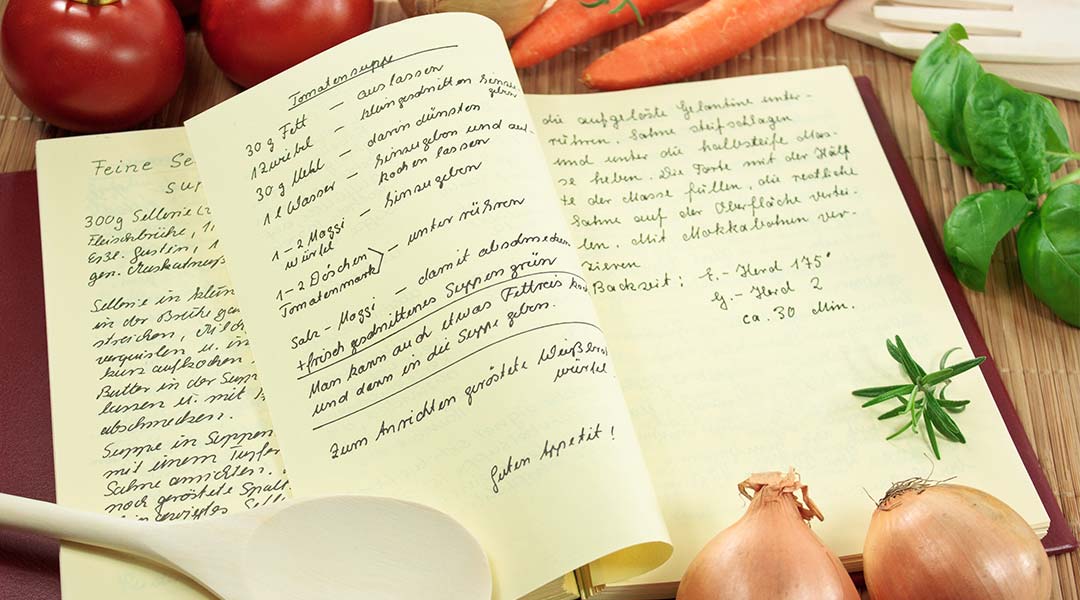 Feine Se
Sup
300g Sellerie
Fleischbrühe, 1
Essl. Gustin, 1
gen. Muskatnuß
Sellerie in
in der Brühe
streichen, Milch
verquirlen u. in
kurz aufkochen
Butter in der Supp
lassen u. mit
abschmecken.
Suppe in Suppen
mit einem Tupfen
Sahne anrichten.
noch geröstete
Tomatensuppe
30 g Fett — auslassen
1 Zwiebel — kleingeschnitten hinzu-
geben
30 g Mehl — darin dünsten
1 l Wasser — hinzugeben und auf-
kochen lassen
1-2 Maggi — hinzugeben
würfel
1-2 Döschen — unter rühren
Tomatenmark
Salz - Maggi — damit abschmecken
+ frisch geschnittenes Suppengrün
Man kann auch etwas Fettreis
und dann in die Suppe geben.
Zum Anrichten geröstete Weißbrot
würfel
Guten Appetit!
die aufgelöste Gelantine unter-
rühren. Sahne steifschlagen
und unter die halbsteife Mas-
se heben. Die Torte mit der Hälf
te der Masse füllen, die restliche
Sahne auf der Oberfläche vertei-
len. Mit Mokkabohnen ver-
zieren
Backzeit: E.-Herd 175°
G.-Herd 2
ca. 30 Min.